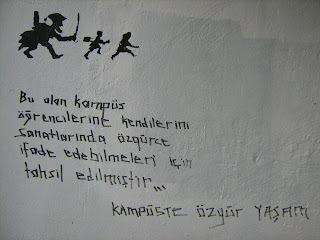 Bu alan kampüs
öğrencilerine kendilerini
sanatlarında özgürce
ifade edebilmeleri için
tahsil edilmiştir...
KAMPÜSTE ÖZGÜR YAŞAM